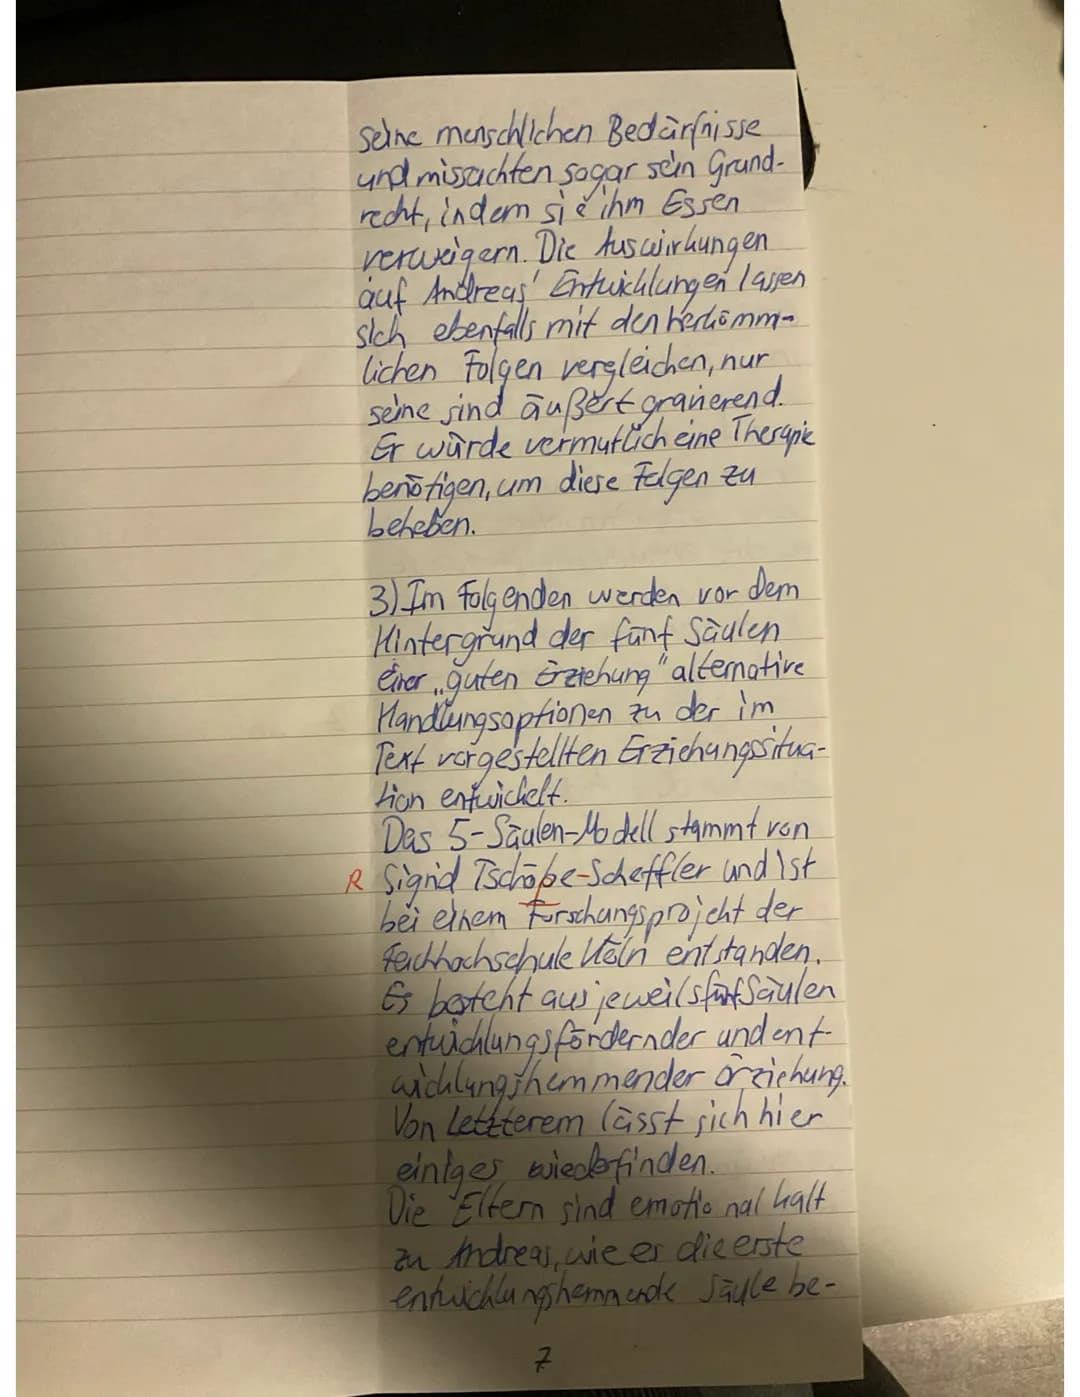 seine menschlichen Bedürfnisse
und missachten sogar sein Grund-
recht, indem sie ihm Essen
verweigern. Die Auswirkungen
auf Andreas' Entwicklungen lassen
sich ebenfalls mit den herkömm-
lichen Folgen vergleichen, nur
seine sind äußert gravierend.
Er würde vermutlich eine Therapie
benötigen, um diese Folgen zu
beheben.
3) Im Folgenden werden vor dem
Hintergrund der fünf Säulen
einer „guten Erziehung" alternative
Handlungsoptionen zu der im
Text vorgestellten Erziehungssitua-
tion entwickelt.
Das 5-Säulen-Modell stammt von
R Sigrid Tschöpe-Scheffler und ist
bei einem Forschungsprojekt der
Fachhochschule Köln entstanden.
Es besteht aus jeweils fünf Säulen
entwicklungsfördernder und ent-
wicklungshemmender Erziehung.
Von Letzterem lässt sich hier
einiges wiederfinden.
Die Eltern sind emotional kalt
zu Andreas, wie es die erste
entwicklungshemmende Säule be-
7